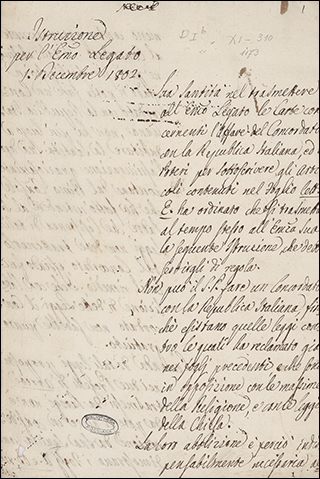 Istruzione
per l'Emo Legato
1. Decembre 1802.
D I b XI - 310
1
Sua Santità nel trasmettere
all'Emo Legato le Carte con
cernenti l'Affare del Concordato
con la Repubblica Italiana, ed
i Poteri per sottoscrivere gli Arti
coli contenuti nel Foglio
E. ha ordinato che si trasmetta
al tempo stesso all'Emza Sua
la seguente Istruzione che de
essergli di regola.
Non può il S. P. fare un Concordato
con la Repubblica Italiana, fin
chè esistano quelle leggi con
tro le quali ha reclamato già
nei fogli precedenti e che sono
in opposizione con le massime
della Religione, e con le leggi
della Chiesa.
La loro abolizione è perciò indis
pensabilmente necessaria